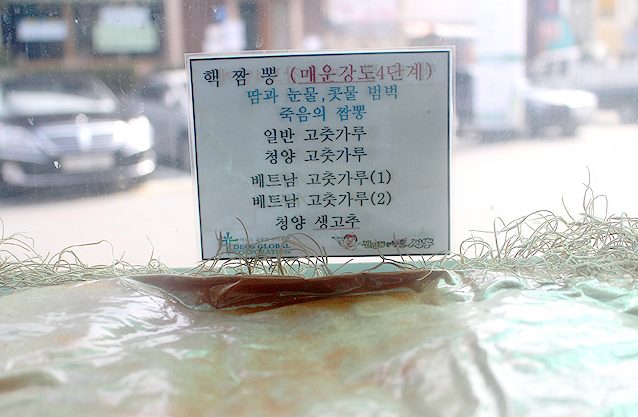 핵 짬 뽕 (매운강도4단계)
땀과 눈물,콧물 범벅
죽음의 짬뽕
일반 고춧가루
청양 고춧가루
베트남 고춧가루(1)
베트남 고춧가루(2)
청양 생고추
DEOS GLOBAL